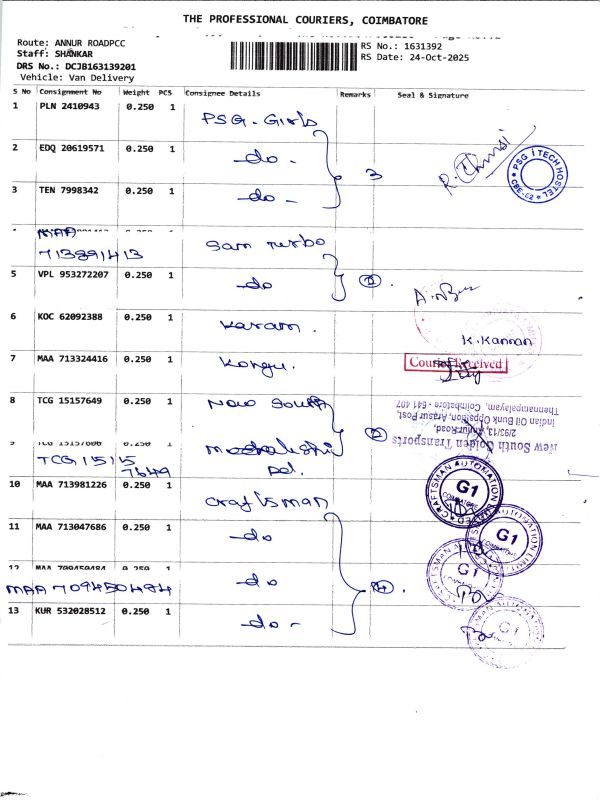 THE PROFESSIONAL COURIERS, COIMBATORE
Route: ANNUR ROADPCC
Staff: SHANKAR
DRS No.: DCJB163139201
Vehicle: Van Delivery
RS No.: 1631392
RS Date: 24-Oct-2025
S No Consignment No Weight PCS Consignee Details Remarks Seal & Signature
1 PLN 2410943 0.250 1 PSG. Girls
2 EDQ 20619571 0.250 1 -do-
3 TEN 7998342 0.250 1 -do- 3
PSG iTECH HOSTEL CBE-62
MAA 713891413 Sam Turbo
5 VPL 953272207 0.250 1 do
6 KOC 62092388 0.250 1 Karam.
K. Kannan
7 MAA 713324416 0.250 1 Kongu.
Courier Received
8 TCG 15157649 0.250 1 New South
New South Golden Transports
2/93/13, Annur Road,
Indian Oil Bunk Opposition, Arasur Post,
Thennampalayam, Coimbatore - 641 407
9 0.250 1
TCG 15115
7649
10 MAA 713981226 0.250 1 Craftsman
CRAFTSMAN AUTOMATION LIMITED G1 COIMBATORE
11 MAA 713047686 0.250 1 -do
12 MAA 709450484 0.250 1 do
MAA 709450484
G1
13 KUR 532028512 0.250 1 -do-
G1